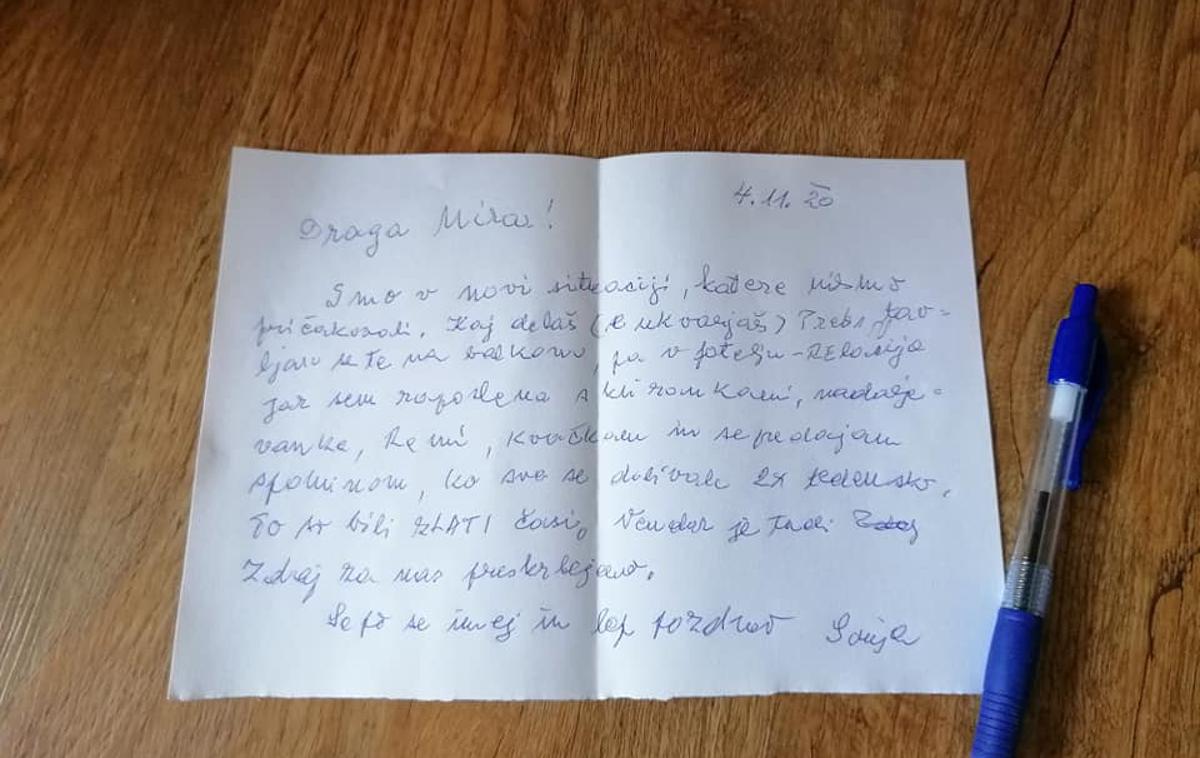 4.11.20
Draga Mira!
Smo v novi situaciji, katere nismo
pričakovali. Kaj delaš (se ukvarjaš)
na balkonu, pa v fotelju - RELAXIJA
jaz sem zaposlena s križankami, nadalje-
vanke, Remi, kvačkam in se predajam
spominom, ko sva se dobivali 2x tedensko.
To so bili ZLATI časi. Vendar je tudi
Zdaj za nas preskrbljeno.
Lepo se imej in lep pozdrav Sonja